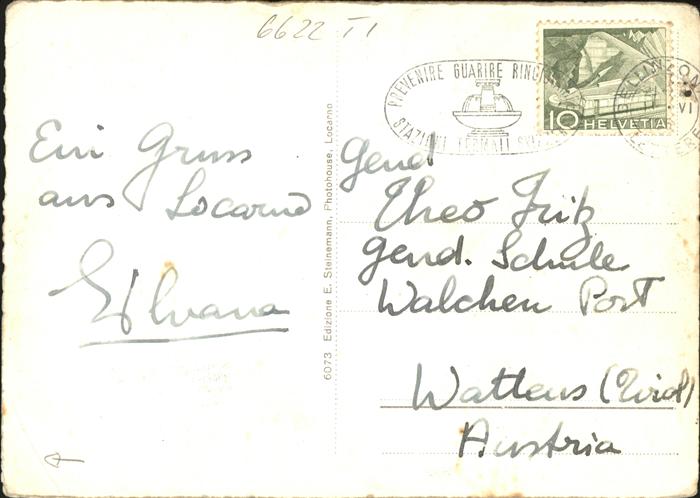 6622 TI
PREVENIRE GUARIRE
STAZIONI TERMALI
10 HELVETIA
BELLINZONA
VI
Ein Gruss
aus Locarno
Silvana
6073 Edizione E. Steinemann, Photohouse, Locarno
Gend
Theo Fritz
Gend. Schule
Walchen Post
Wattens (Tirol)
Austria